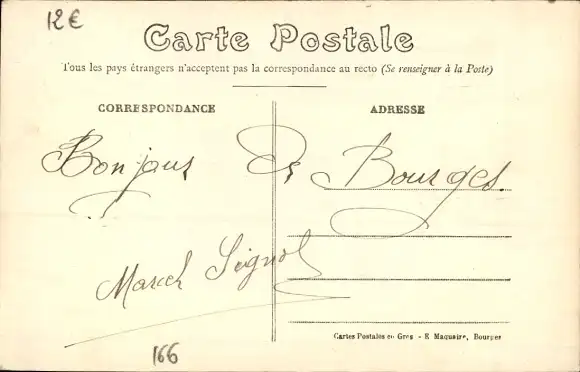 12€
Carte Postale
Tous les pays étrangers n'acceptent pas la correspondance au recto (Se renseigner à la Poste)
CORRESPONDANCE
ADRESSE
Bonjour De Bourges
Marcel Seignol
Cartes Postales en Gros - E Maquaire, Bourges
166